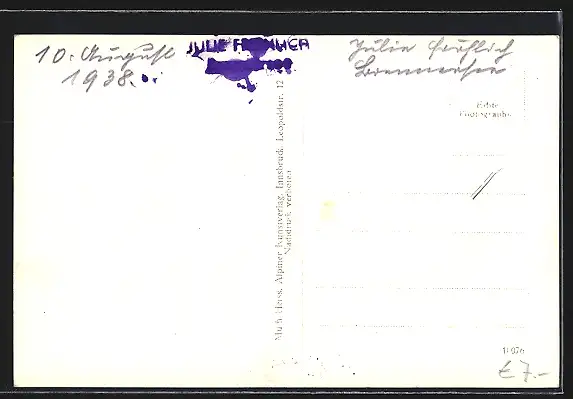 10. August
1938.
JULIE
Julie Fröhlich
Brennersee
Echte
Photographie
Much Heiss, Alpiner Kunstverlag, Innsbruck, Leopoldstr. 12
Nachdruck verboten
11076
€ 7.-